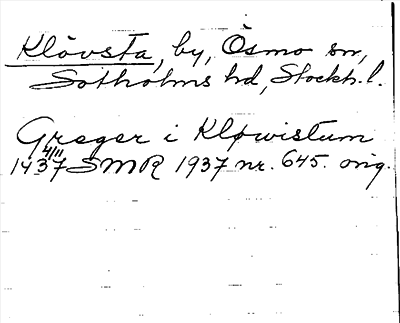 Klövsta, by, Ösmo sn,
Sotholms hd, Stockh. l.
Greger i Kløwistum
1437 4/11 SMR 1937 nr. 645. orig.